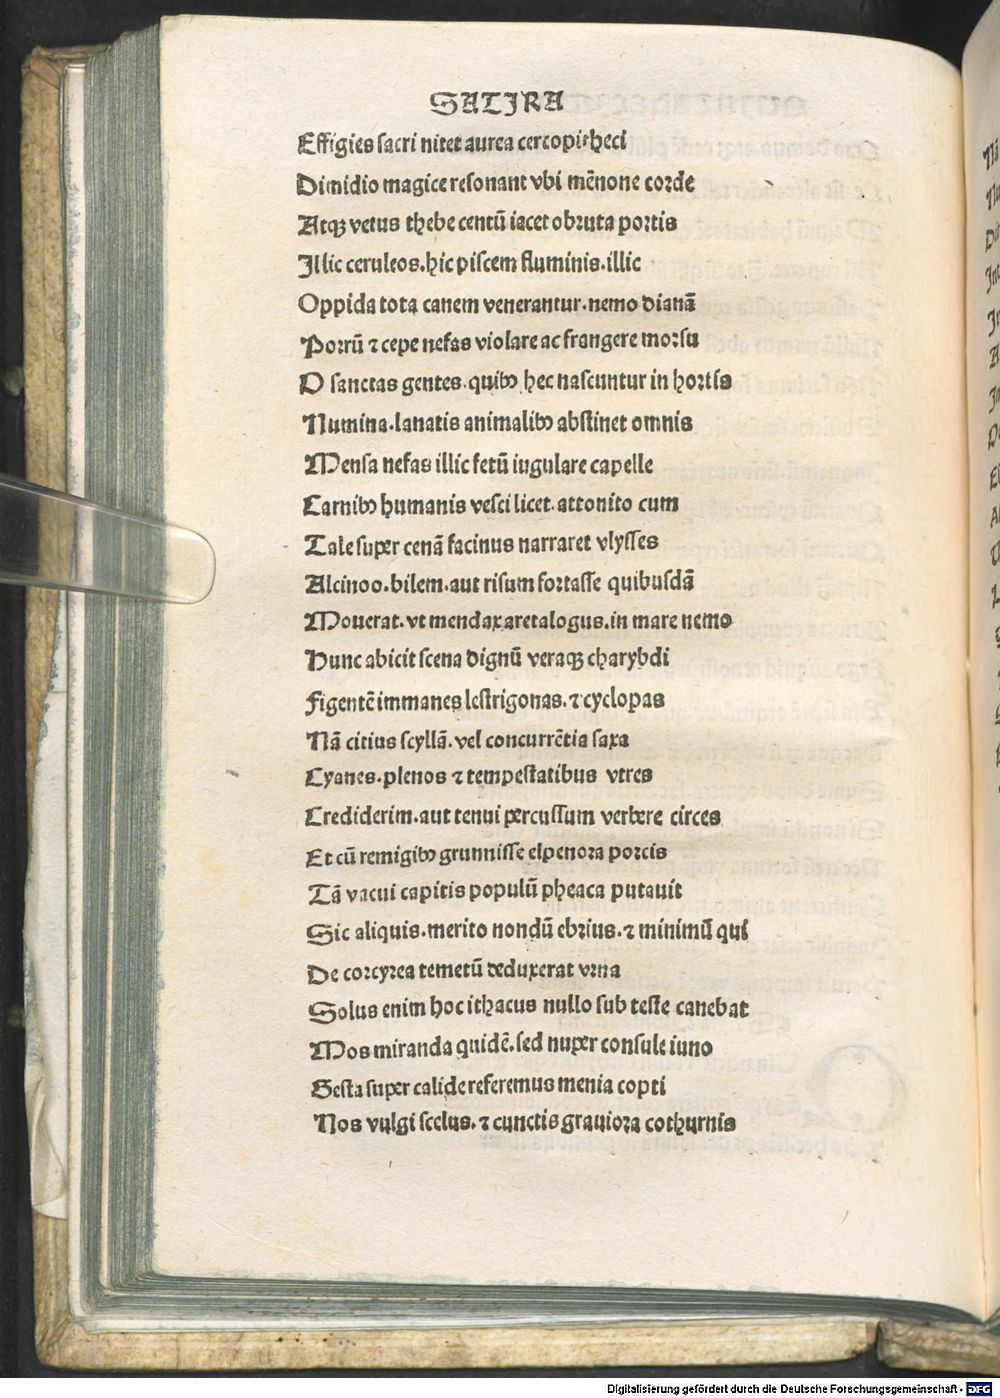 SATIRA
Effigies sacri nitet aurea cercopitheci
Dimidio magice resonant vbi mẽnone corde
Atqꝫ vetus thebe centũ iacet obruta portis
Illic ceruleos.hic piscem fluminis.illic
Oppida tota canem venerantur.nemo dianã
Porrũ ⁊ cepe nefas violare ac frangere morsu
O sanctas gentes.quibꝰ hec nascuntur in hortis
Numina.lanatis animalibꝰ abstinet omnis
Mensa nefas illic fetũ iugulare capelle
Carnibꝰ humanis vesci licet.attonito cum
Tale super cenã facinus narraret vlysses
Alcinoo.bilem.aut risum fortasse quibusdã
Mouerat.vt mendax aretalogus.in mare nemo
Hunc abicit scena dignũ veraqꝫ charybdi
Figentẽ immanes lestrigonas.⁊ cyclopas
Nã citius scyllã.vel concurrẽtia saxa
Cyanes.plenos ⁊ tempestatibus vtres
Crediderim.aut tenui percussum verbere circes
Et cũ remigibꝰ grunnisse elpenora porcis
Tã vacui capitis populũ pheaca putauit
Sic aliquis.merito nondũ ebrius.⁊ minimũ qui
De corcyrea temetũ deduxerat vrna
Solus enim hoc ithacus nullo sub teste canebat
Mos miranda quidẽ.sed nuper consule iuno
Gesta super calide referemus menia copti
Nos vulgi scelus.⁊ cunctis grauiora cothurnis
Digitalisierung gefördert durch die Deutsche Forschungsgemeinschaft - DFG